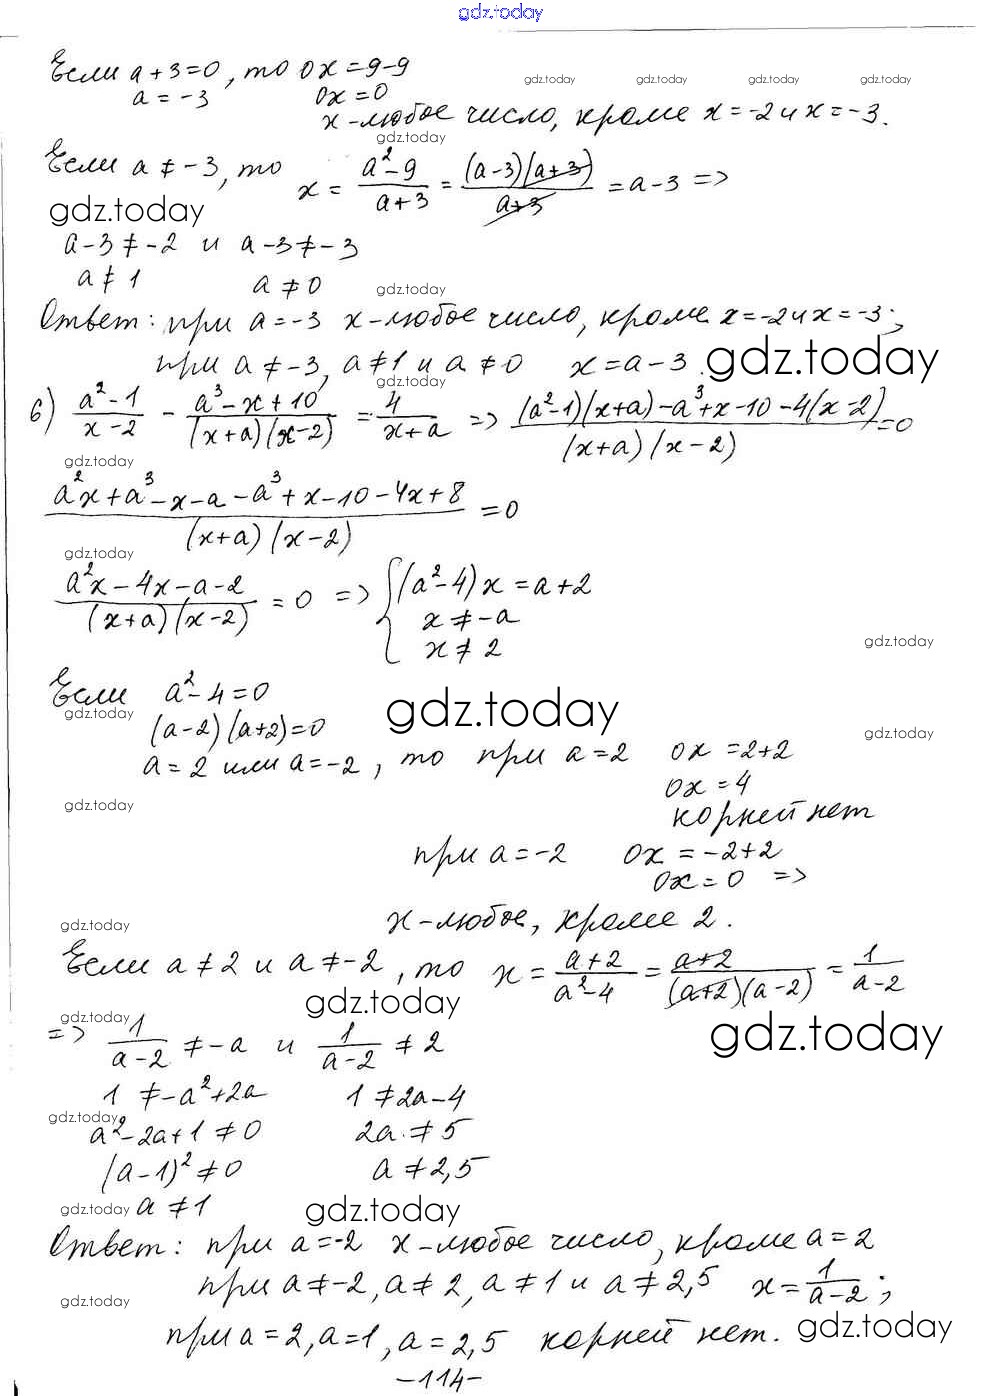 gdz.today
Если a+3=0, то 0x=9-9
a=-3 0x=0
gdz.today gdz.today gdz.today gdz.today
x-любое число, кроме x=-2 и x=-3.
gdz.today
Если a≠-3, то x = (a²-9)/(a+3) = ((a-3)(a+3))/(a+3) = a-3 =>
gdz.today
a-3≠-2 и a-3≠-3
a≠1 a≠0
gdz.today
Ответ: при a=-3 x-любое число, кроме x=-2 и x=-3;
при a≠-3, a≠1 и a≠0 x=a-3.
gdz.today
gdz.today
б) (a²-1)/(x-2) - (a³-x+10)/((x+a)(x-2)) = 4/(x+a) => ((a²-1)(x+a)-a³+x-10-4(x-2))/((x+a)(x-2)) =0
gdz.today
(a²x+a³-x-a-a³+x-10-4x+8)/((x+a)(x-2)) =0
gdz.today
(a²x-4x-a-2)/((x+a)(x-2)) = 0 => { (a²-4)x=a+2
x≠-a
x≠2
gdz.today
Если a²-4=0
gdz.today gdz.today
(a-2)(a+2)=0
gdz.today
a=2 или a=-2, то при a=2 0x=2+2
0x=4
gdz.today
корней нет
при a=-2 0x=-2+2
0x=0 =>
x-любое, кроме 2.
gdz.today
Если a≠2 и a≠-2, то x = (a+2)/(a²-4) = (a+2)/((a+2)(a-2)) = 1/(a-2)
gdz.today
gdz.today gdz.today
=> 1/(a-2) ≠-a и 1/(a-2) ≠2
1≠-a²+2a 1≠2a-4
gdz.today
a²-2a+1≠0 2a≠5
(a-1)²≠0 a≠2,5
gdz.today a≠1 gdz.today
Ответ: при a=-2 x-любое число, кроме a=2
при a≠-2, a≠2, a≠1 и a≠2,5 x = 1/(a-2);
gdz.today
при a=2, a=1, a=2,5 корней нет. gdz.today
-114-